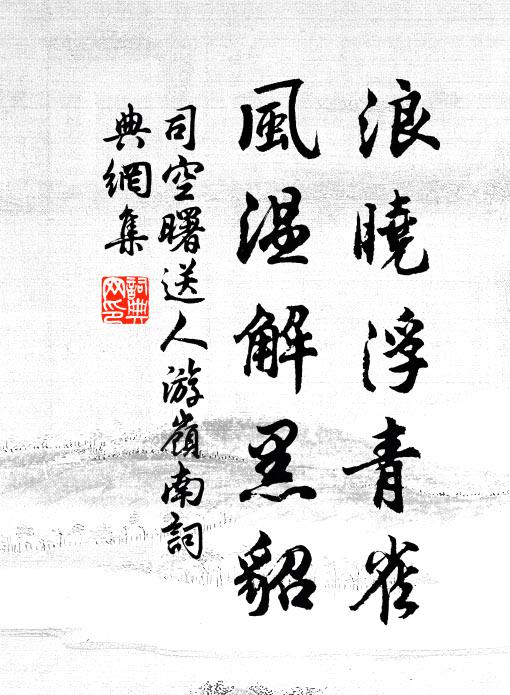 浪曉浮青雀
風温解黑貂
司空曙送人游嶺南詞
典網集
詞典
网印